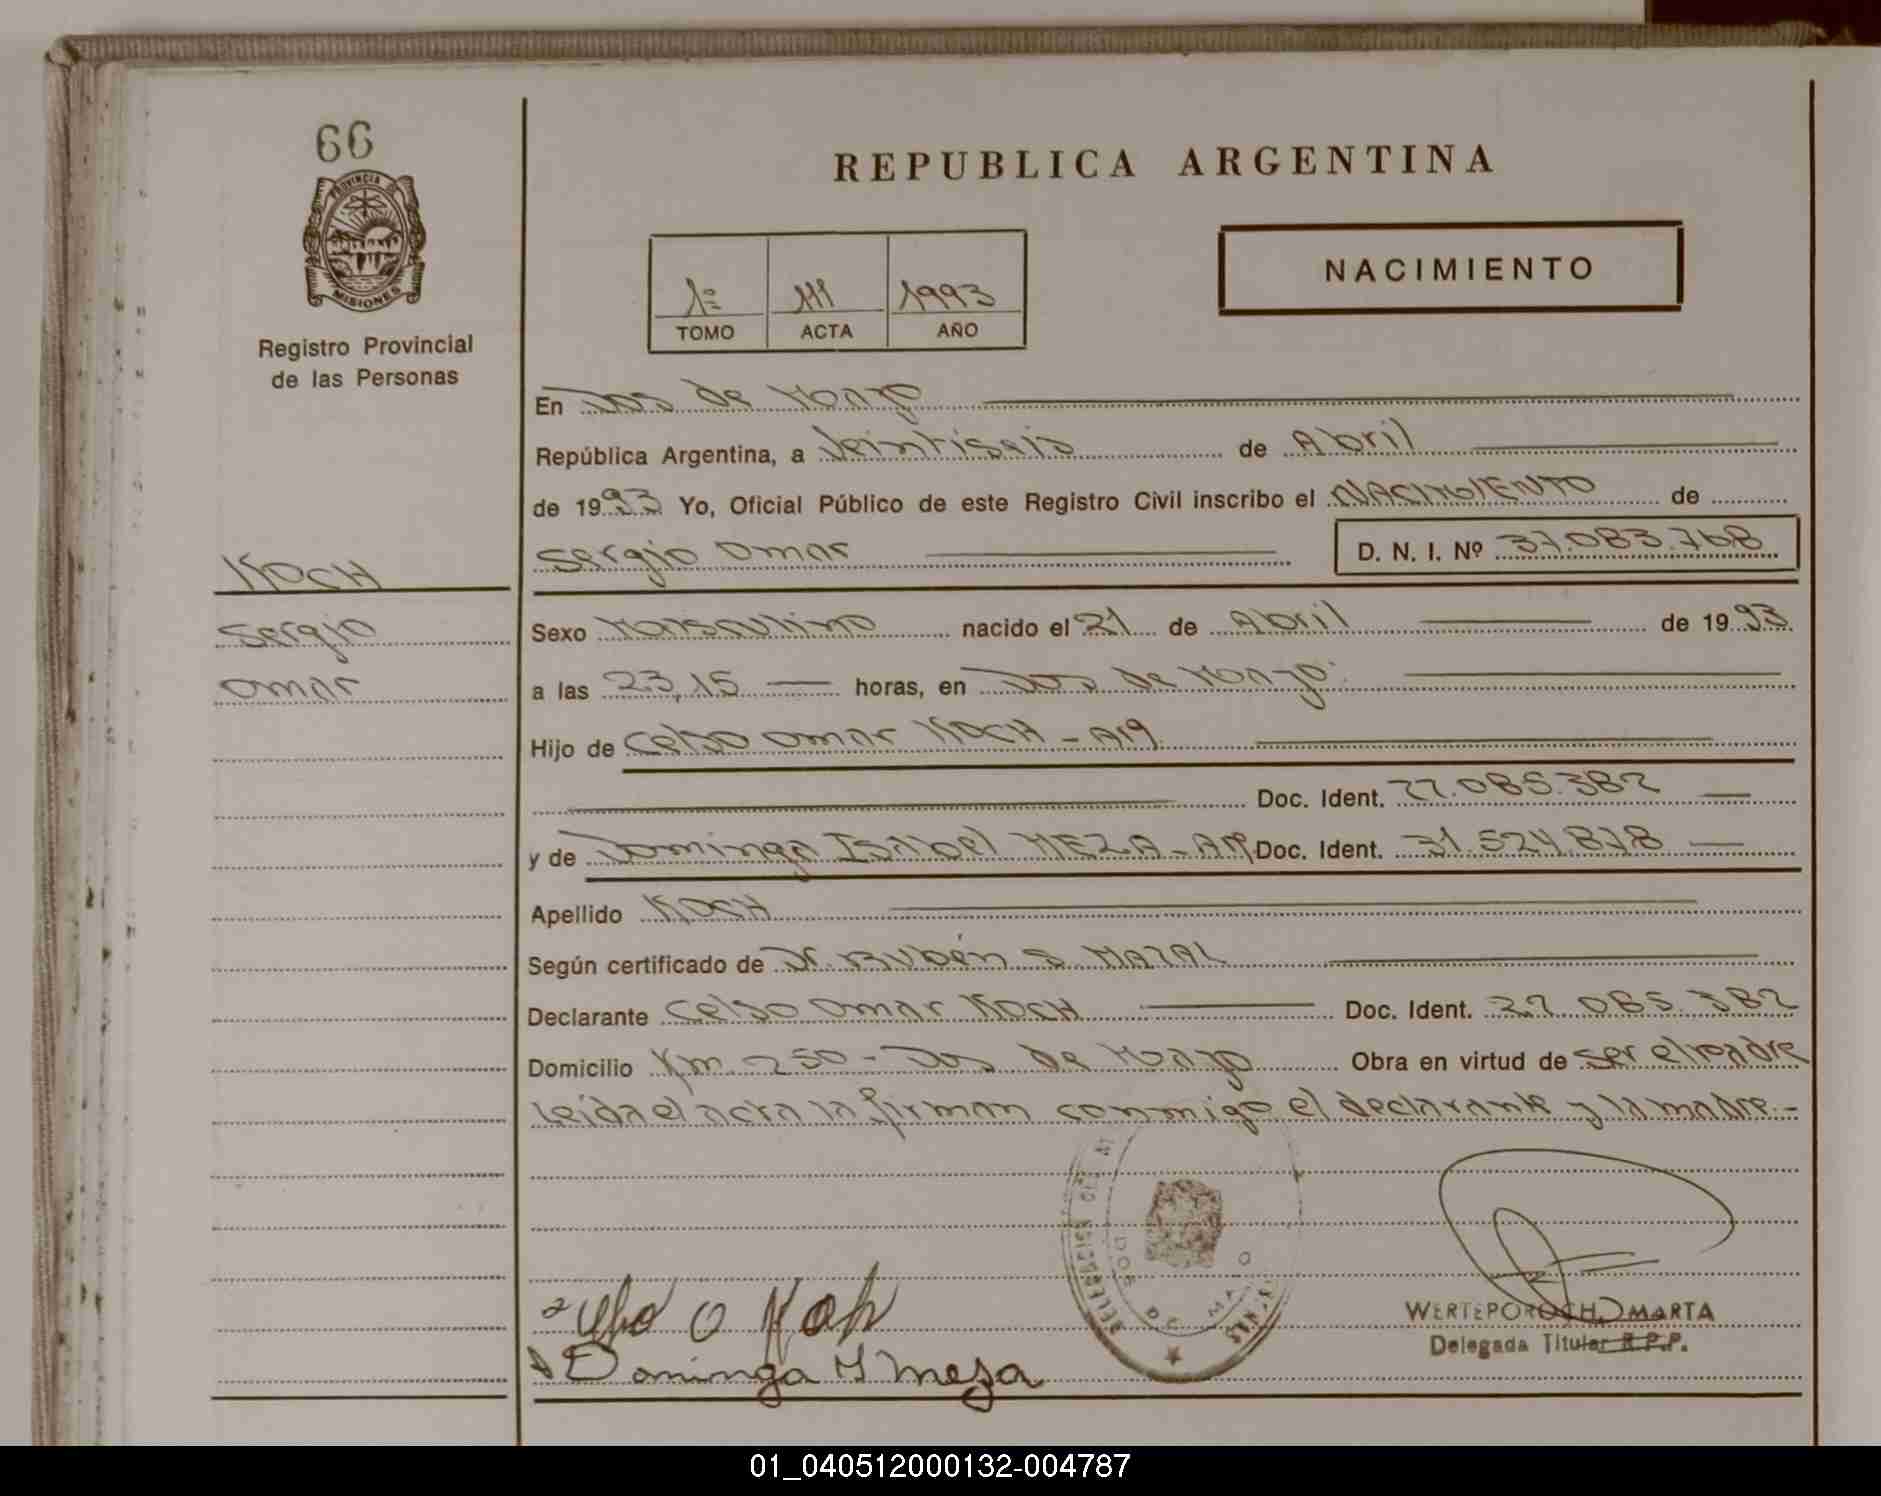 66
PROVINCIA DE
MISIONES
Registro Provincial
de las Personas
REPUBLICA ARGENTINA
1º 111 1993
TOMO ACTA AÑO
NACIMIENTO
En Dos de Mayo
República Argentina, a Veintiseis de Abril
de 1993 Yo, Oficial Público de este Registro Civil inscribo el NACIMIENTO de
Sergio Omar D. N. I. Nº 37.083.768
KOCH
Sergio
Omar
Sexo Masculino nacido el 21 de Abril de 1993
a las 23,15 horas, en Dos de Mayo.
Hijo de Celso Omar KOCH - Arg.
Doc. Ident. 22.085.382
y de Dominga Isabel MEZA - Arg. Doc. Ident. 31.524.878
Apellido KOCH
Según certificado de Dr. Rubén S. MAZAL
Declarante Celso Omar KOCH Doc. Ident. 22.085.382
Domicilio Km. 250 - Dos de Mayo Obra en virtud de ser el padre
Leida el acta la firman conmigo el declarante y la madre.-
O Koh
Dominga I Meza
WERTEPOROCH, MARTA
Delegada Titular R.P.P.
01_040512000132-004787